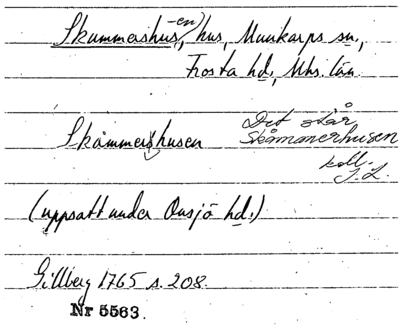 Skummershus, -en) hus, Munkarps sn.,
Frosta hd, Mhs. län
Skåmmershusen
Det står
Skåmmerhusen
koll.
J.L.
(uppsatt under Onsjö hd.)
Gillberg 1765 s. 208.
Nr 5563.